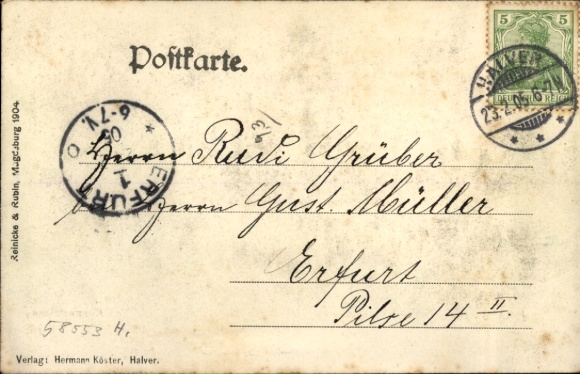 Postkarte.
5 5
DEUTSCHES REICH
HALVER
23.2.05.6-7N
6-7N.
05
1
ERFURT
Herrn Rudi Grüber
bei Herrn Gust. Müller
Erfurt
Pilse 14 II.
58553 H.
Reinicke & Rubin, Magdeburg 1904.
Verlag: Hermann Köster, Halver.